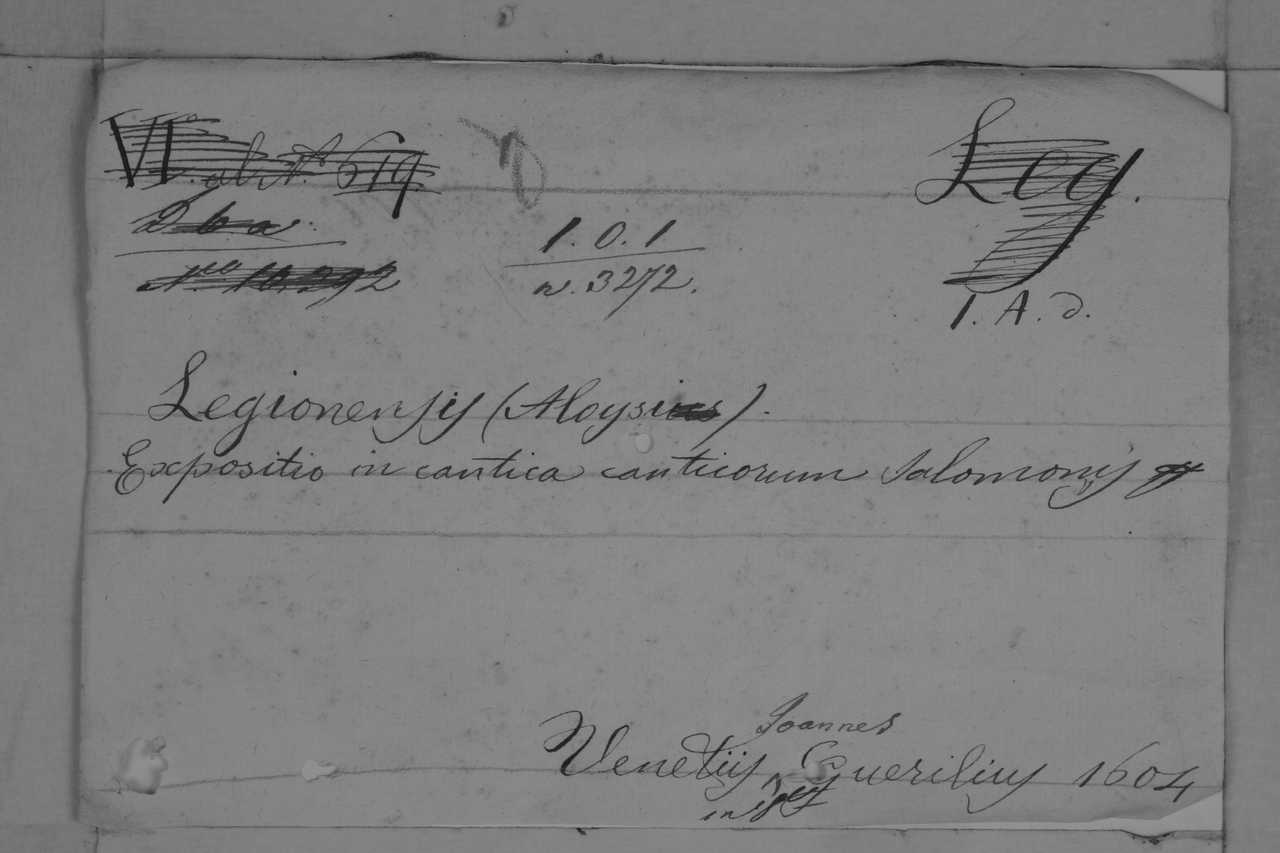 VI. al N.º 619
Leg.
D b a
1.0.1
N.ro 10.292
n. 3272.
1. A. d.
Legionensis (Aloysius).
Expositio in cantica canticorum Salomonis
Joannes
Venetiis, Guerilius 1604
in